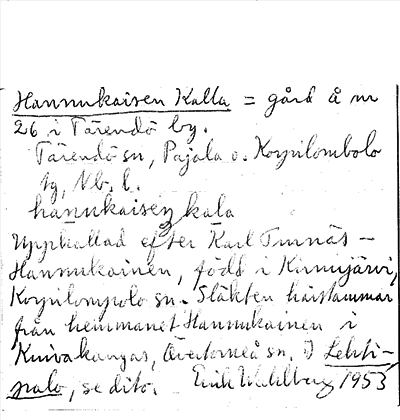 Hannukaisen Kalla = gård å nr
26 i Tärendö by.
Tärendö sn, Pajala o. Korpilombolo
tg, Nb. l.
hanukaisen kala
Uppkallad efter Karl Turnäs –
Hannukainen, född i Kirnujärvi,
Korpilompolo sn. Släkten härstammar
från hemmanet Hannukainen i
Kuivakangas, Övertorneå sn. Lehti-
palo, se dito. Erik Wahlberg 1953